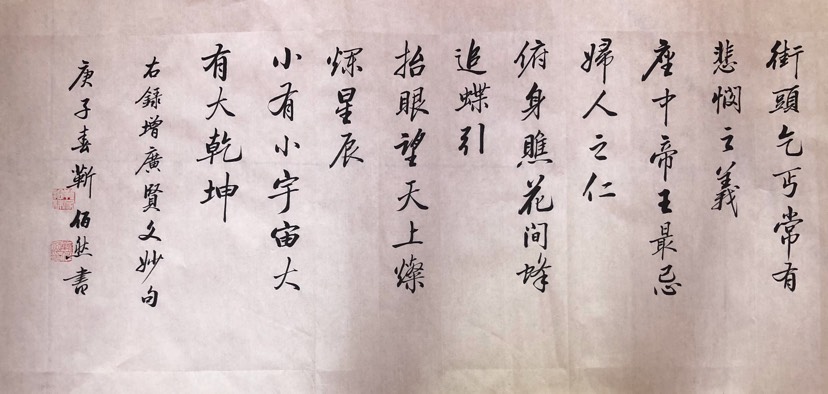 街頭乞丐常有
悲憫之義
座中帝王最忌
婦人之仁
俯身瞧花间蜂
追蝶引
抬眼望天上燦
爛星辰
小有小宇宙大
有大乾坤
右録增廣賢文妙句
庚子春靳佰然書